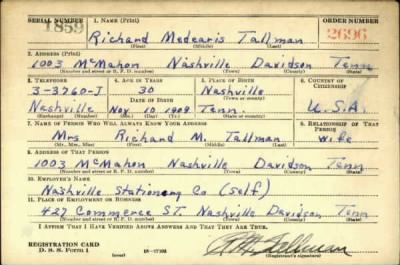 SERIAL NUMBER 1. NAME (Print) ORDER NUMBER
1859 Richard Medearis Tallman 2696
(First) (Middle) (Last)
2. ADDRESS (Print)
1003 McMahon Nashville Davidson Tenn
(Number and street or R. F. D. number) (Town) (County) (State)
3. TELEPHONE 4. AGE IN YEARS 5. PLACE OF BIRTH 6. COUNTRY OF CITIZENSHIP
3-3760-J 30 Nashville
(Town or county)
DATE OF BIRTH
Nashville Nov. 10 1909 Tenn. U.S.A.
(Exchange) (Number) (Mo.) (Day) (Yr.) (State or country)
7. NAME OF PERSON WHO WILL ALWAYS KNOW YOUR ADDRESS 8. RELATIONSHIP OF THAT PERSON
Mrs Richard M. Tallman wife
(Mr., Mrs., Miss) (First) (Middle) (Last)
9. ADDRESS OF THAT PERSON
1003 McMahon Nashville Davidson Tenn
(Number and street or R. F. D. number) (Town) (County) (State)
10. EMPLOYER'S NAME
Nashville Stationery Co (Self)
11. PLACE OF EMPLOYMENT OR BUSINESS
427 Commerce ST. Nashville Davidson Tenn
(Number and street or R. F. D. number) (Town) (County) (State)
I AFFIRM THAT I HAVE VERIFIED ABOVE ANSWERS AND THAT THEY ARE TRUE.
REGISTRATION CARD
D. S. S. Form 1 (over) RM Tallman
(Registrant's signature)